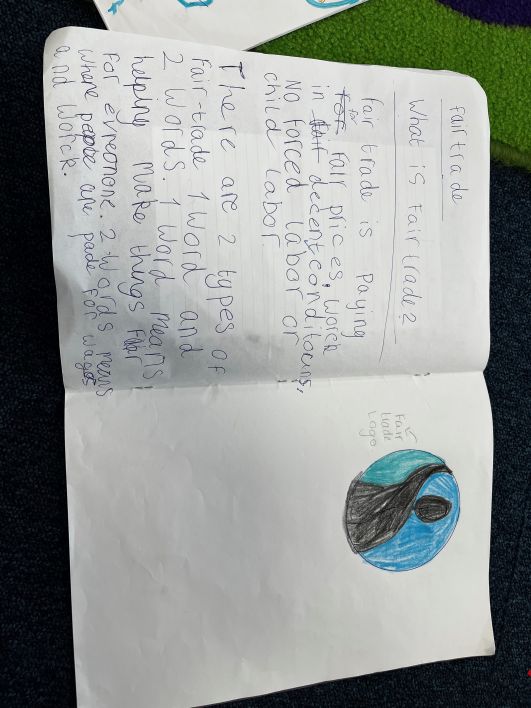 fairtrade
What is Fairtrade?
fair trade is Paying
for fair prices, worck
in decent conditouns,
No forced labor or
child labor.
There are 2 types of
Fair-trade 1 word and
2 words. 1 word means
helping make things fair
for evreonone. 2-words means
where people are pade for wages
and worck.
Fair
trade
Logo